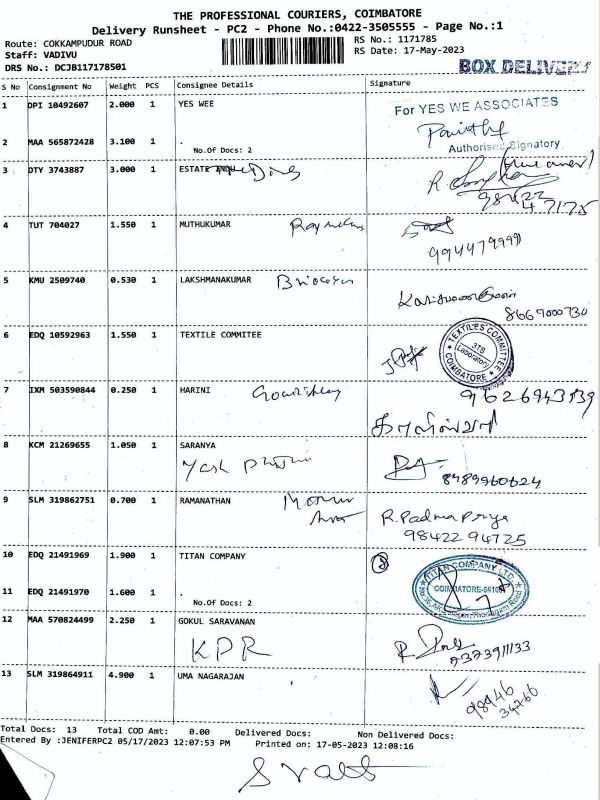 THE PROFESSIONAL COURIERS, COIMBATORE
Delivery Runsheet - PC2 - Phone No.:0422-3505555 - Page No.:1
Route: COKKAMPUDUR ROAD
RS No.: 1171785
Staff: VADIVU
RS Date: 17-May-2023
DRS No.: DCJB117178501
BOX DELIVERY
S No Consignment No Weight PCS Consignee Details Signature
1 DPI 10492607 2.000 1 YES WEE
For YES WE ASSOCIATES
2 MAA 565872428 3.100 1 .
No.Of Docs: 2
Authorised Signatory
3 DTY 3743887 3.000 1 ESTATE
98422
47175
4 TUT 704027 1.550 1 MUTHUKUMAR
9944779999
5 KMU 2509740 0.530 1 LAKSHMANAKUMAR
8669000730
6 EDQ 10592963 1.550 1 TEXTILE COMMITEE
TEXTILES COMMITTEE
3TS
Laboratory
COIMBATORE
7 IXM 503590844 0.250 1 HARINI
8 KCM 21269655 1.050 1 SARANYA
8489960624
9 SLM 319862751 0.700 1 RAMANATHAN
R. Padma Priya
98422 94725
10 EDQ 21491969 1.900 1 TITAN COMPANY
TITAN COMPANY LTD.
11 EDQ 21491970 1.600 1 .
No.Of Docs: 2
12 MAA 570824499 2.250 1 GOKUL SARAVANAN
KPR
7373911133
13 SLM 319864911 4.900 1 UMA NAGARAJAN
98946
34766
Total Docs: 13 Total COD Amt: 0.00 Delivered Docs: Non Delivered Docs:
Entered By :JENIFERPC2 05/17/2023 12:07:53 PM Printed on: 17-05-2023 12:08:16